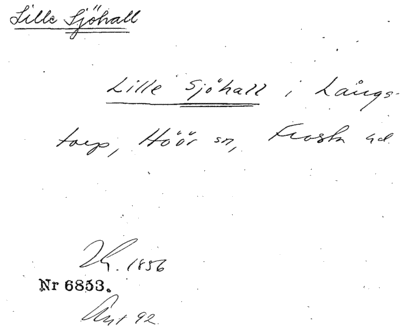 Lille Sjöhall
Lille Sjöhall i Långs-
torp, Höör sn, Frosta hd.
1856
Nr 6853.
Ant 92